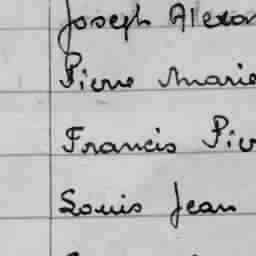 Joseph Alexan
Pierre Marie
Francis Pier
Louis Jean